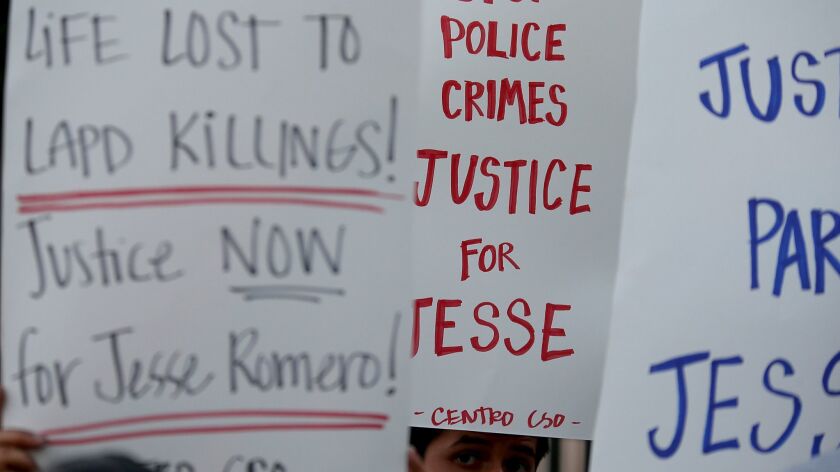 LiFE LOST TO
LAPD KiLLiNGS!
Justice NOW
for Jesse Romero!
POLICE
CRIMES
JUSTICE
FOR
JESSE
- CENTRO CSO -
JUST
PAR
JES